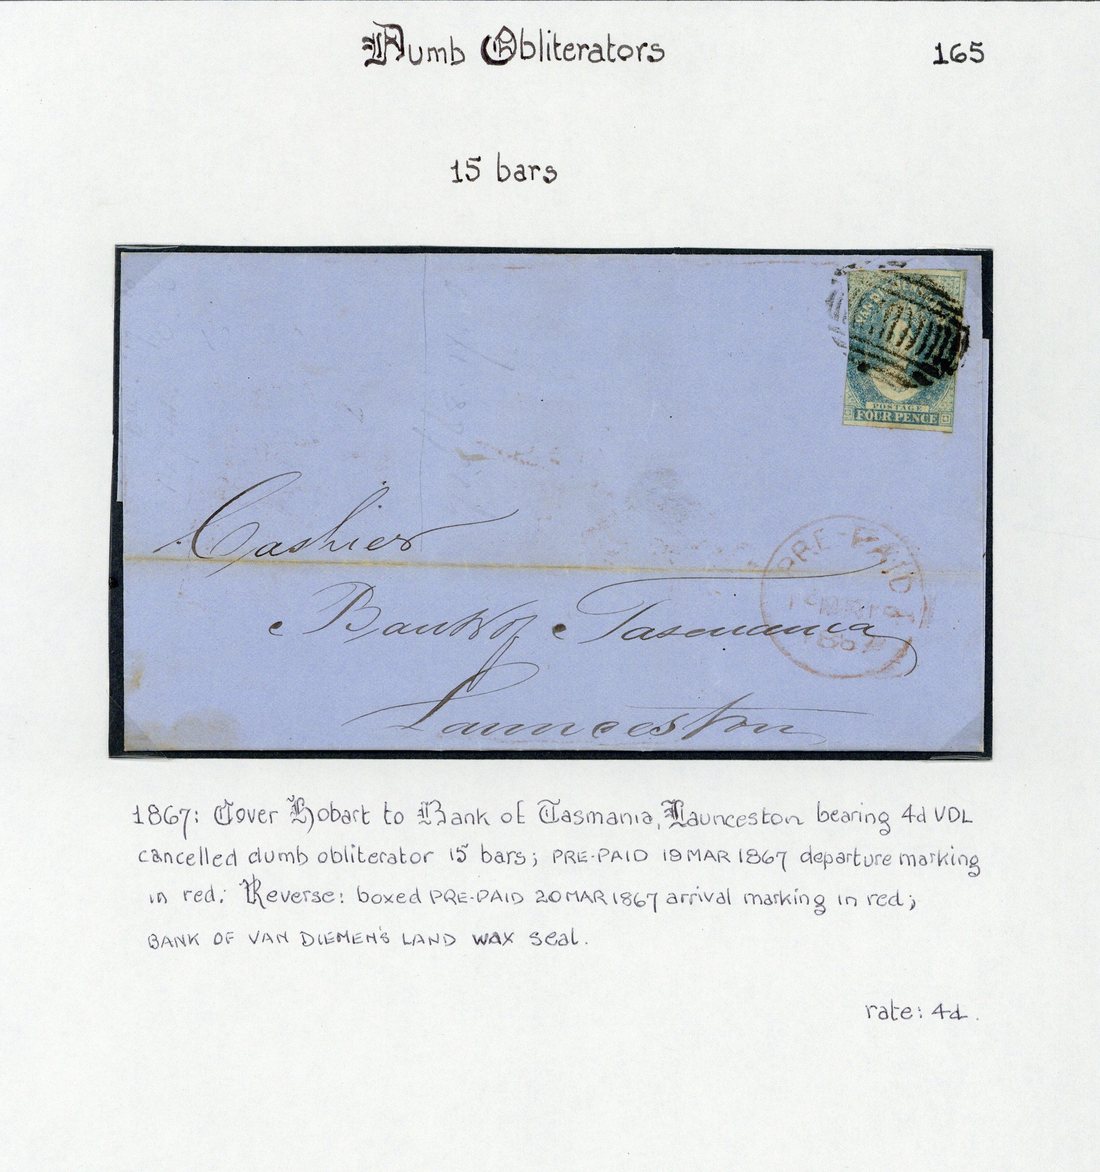 Dumb Obliterators
165
15 bars
VAN DIEMENS
POSTAGE
FOUR PENCE
Cashier
Bank of Tasmania
Launceston
PRE-PAID
MR 19
1867
1867: Cover Hobart to Bank of Tasmania, Launceston bearing 4d VDL
cancelled dumb obliterator 15 bars; PRE-PAID 19 MAR 1867 departure marking
in red. Reverse: boxed PRE-PAID 20 MAR 1867 arrival marking in red;
BANK OF VAN DIEMEN'S LAND WAX seal.
rate: 4d.